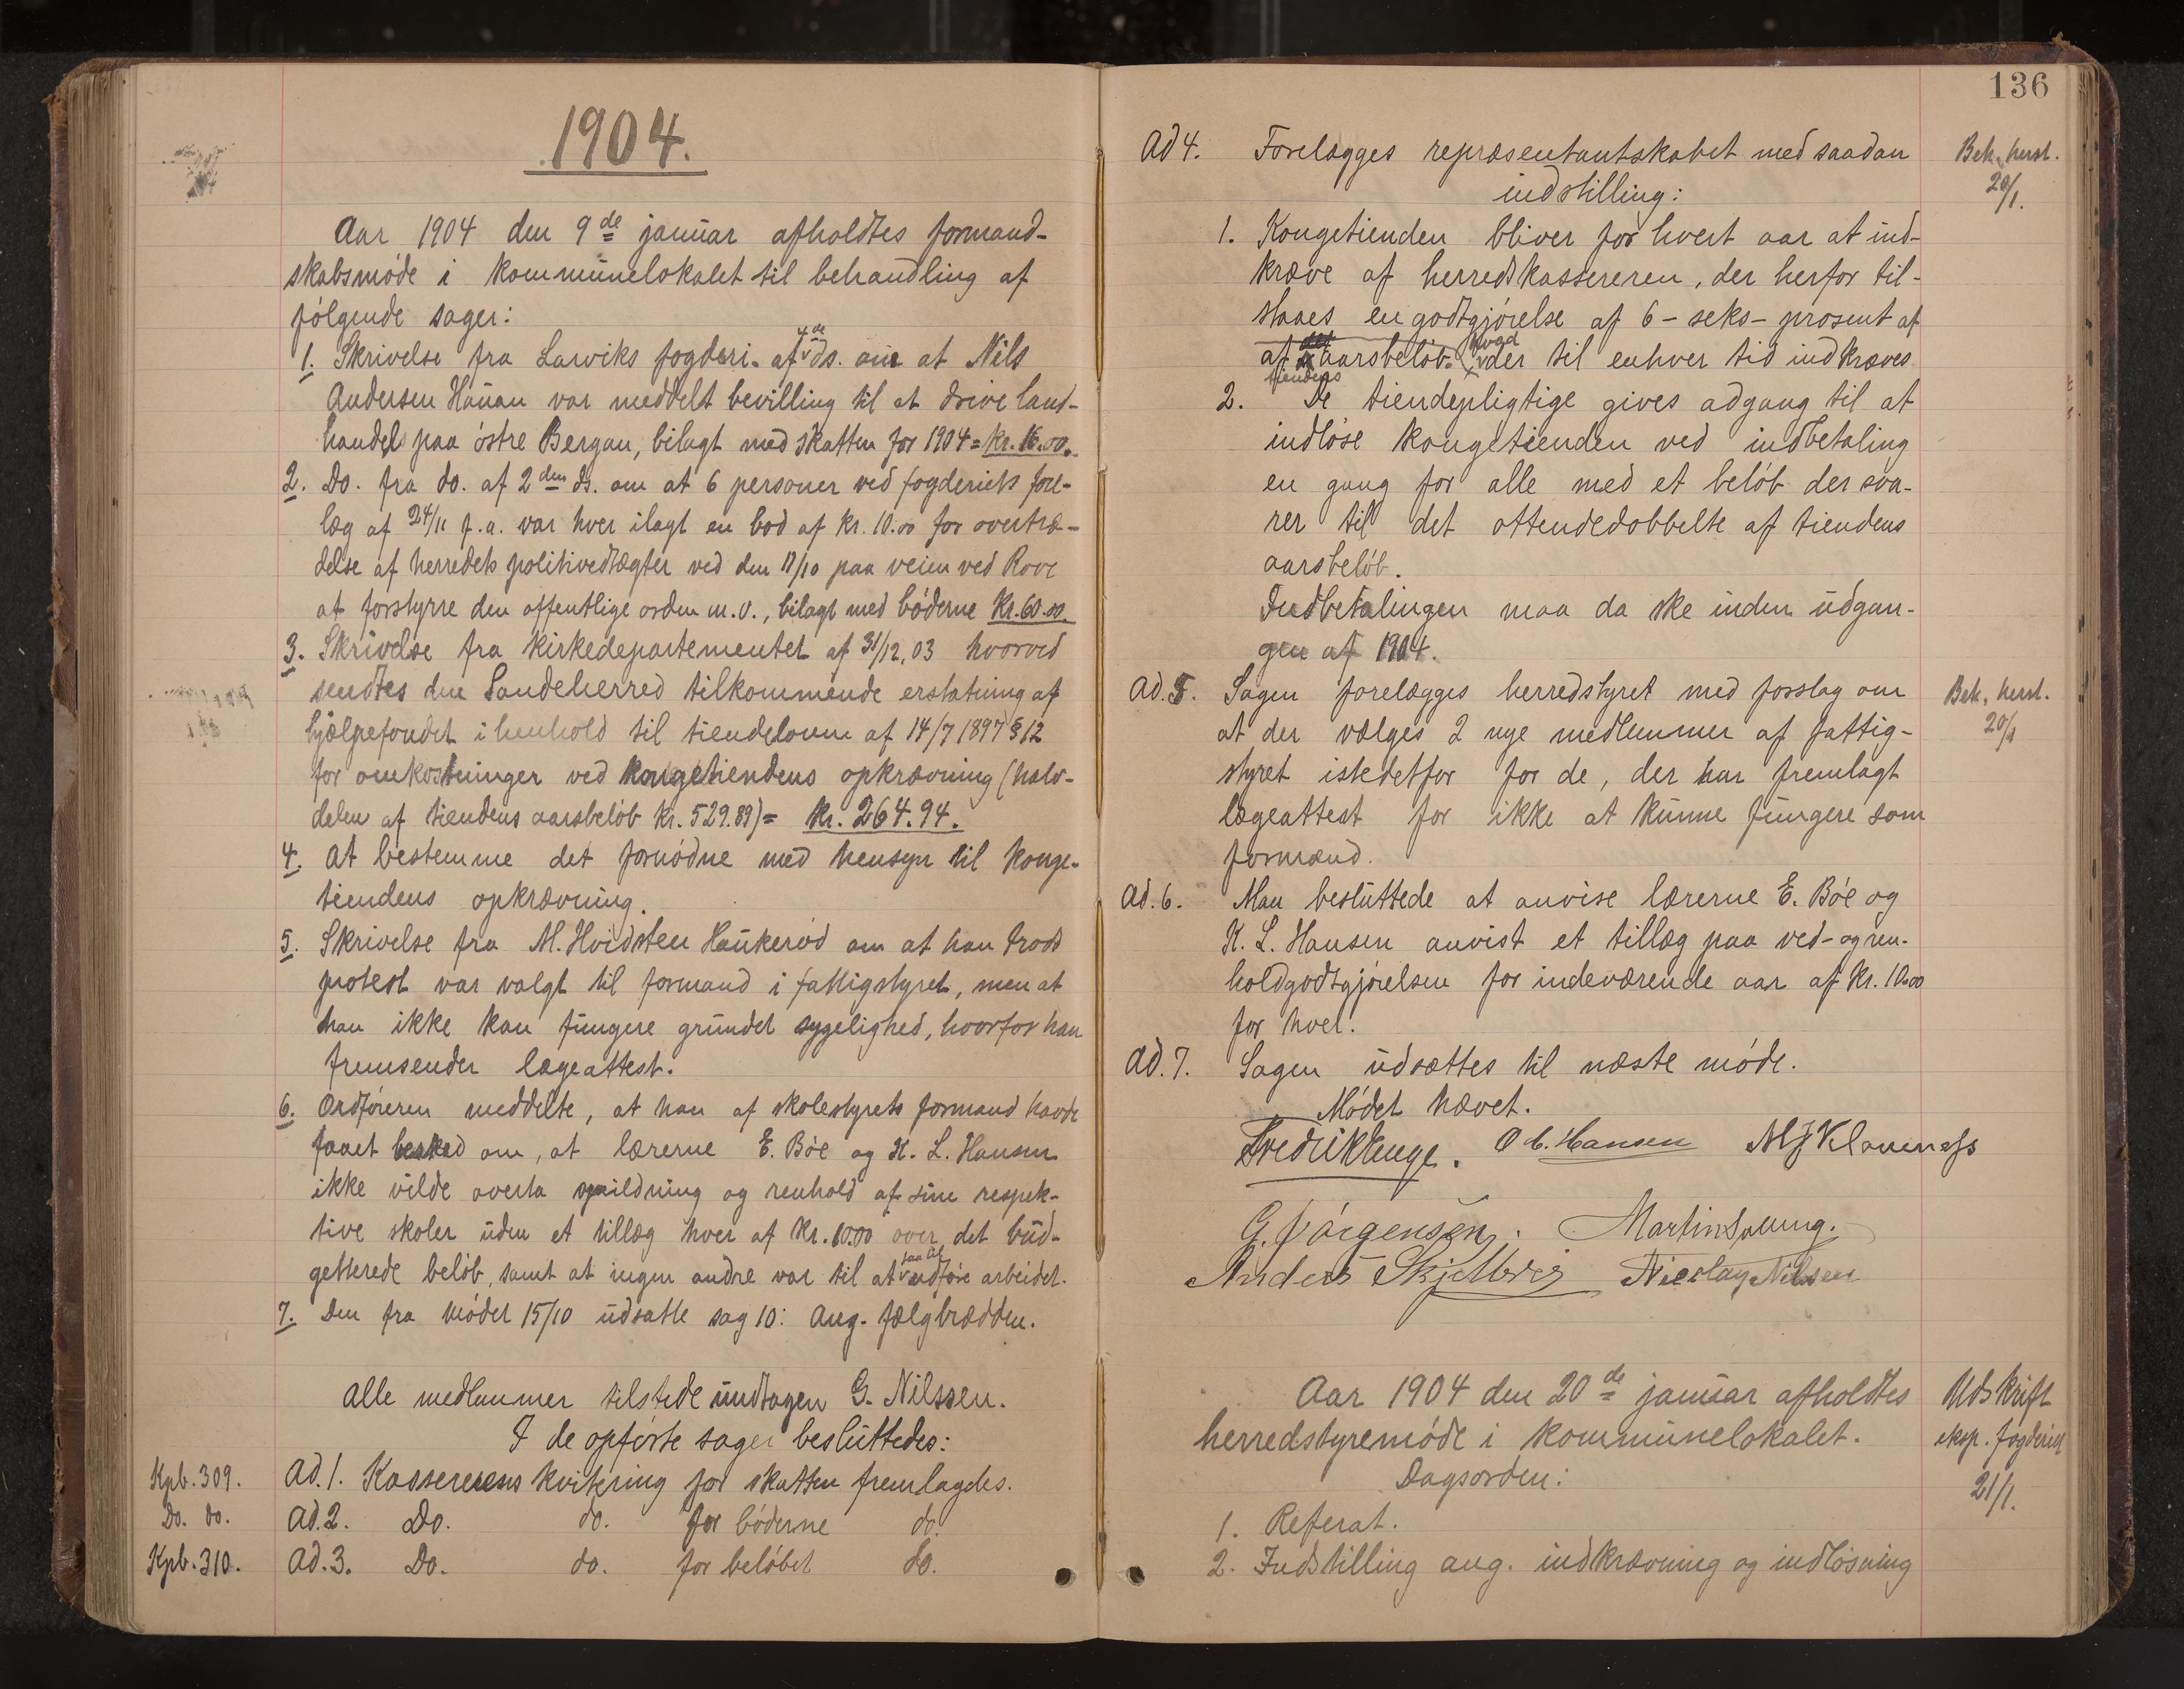 1904.
Aar 1904 den 9de januar afholdtes formand-
skabsmøde i kommunelokalet til behandling af
følgende sager:
1. Skrivelse fra Larviks fogderi af 4de ds. om at Nils
Andersen Hauan var meddelt bevilling til at drive land-
handel paa østre Bergan, bilagt med skatten for 1904 = kr. 16.00.
2. Do. fra do. af 2den ds. om at 6 personer ved fogderiets fore-
læg af 24/11 f.a. var hver ilagt en bod af kr. 10.00 for overtræ-
delse af herredets politivedtægter ved den 17/10 paa veien ved Rove
at forstyrre den offentlige orden m.v., bilagt med bøderne kr. 60.00.
3. Skrivelse fra Kirkedepartementet af 31/12, 03 hvorved
sendtes den Sandeherred tilkommende erstatning af
hjælpefondet i henhold til tiendeloven af 14/7 1897 § 12
for omkostninger ved kongetiendens opkrævning (halv-
delen af tiendens aarsbeløb kr. 529.89) = kr. 264.94.
4. At bestemme det fornødne med hensyn til konge-
tiendens opkrævning.
5. Skrivelse fra M. Hvidsten Haukerød om at han trods
protest var valgt til formand i fattigstyret, men at
han ikke kan fungere grundet sygelighed, hvorfor han
fremsender lægeattest.
6. Ordføreren meddelte, at han af skolestyrets formand havde
faaet besked om, at lærerne E. Bøe og K. L. Hansen
ikke vilde overta opildning og renhold af sine respek-
tive skoler uden et tillæg hver af kr. 10.00 over det bud-
getterede beløb, samt at ingen andre var til at faa at udføre arbeidet.
7. Den fra mødet 15/10 udsatte sag 10: Ang. fælgbredden.
Alle medlemmer tilstede undtagen G. Nilssen.
I de opførte sager besluttedes:
Kpb. 309. Ad. 1. Kassererens kvitering for skatten fremlagdes.
Do. do. Ad. 2. Do. do. for bøderne do.
Kpb. 310. Ad. 3. Do. do. for beløbet do.
136
Ad 4. Forelægges repræsentantskabet med saadan Bek. herst.
indstilling: 20/1.
1. Kongetienden bliver for hvert aar at ind-
kræve af herredskassereren, der herfor til-
staaes en godtgjørelse af 6 - seks - prosent af
af det aarsbeløb. hvad der til enhver tid indkræves
tiendens
2. De tiendepligtige gives adgang til at
indløse kongetienden ved indbetaling
en gang for alle med et beløb der sva-
rer til det ottendedobbelte af tiendens
aarsbeløb.
Indbetalingen maa da ske inden udgan-
gen af 1904.
Ad. 5. Sagen forelægges herredstyret med forslag om Bek. herst.
at der vælges 2 nye medlemmer af fattig- 20/1
styret istedetfor for de, der har fremlagt
lægeattest for ikke at kunne fungere som
formænd.
Ad. 6. Man besluttede at anvise lærerne E. Bøe og
K. L. Hansen anvist et tillæg paa ved- og ren-
holdgodtgjørelsen for indeværende aar af kr. 10.00
for hver.
Ad. 7. Sagen udsættes til næste møde.
Mødet hævet.
Fredrik Stenge. O C. Hansen M J Klavenæss
G. Jørgensen. Martin
Anders Skjelbrei Nicolay Nilsen
Aar 1904 den 20de januar afholdtes Udskrift
herredstyremøde i kommunelokalet. eksp. fogderiet
Dagsorden: 21/1.
1. Referat.
2. Indstilling ang. indkrævning og indløsning